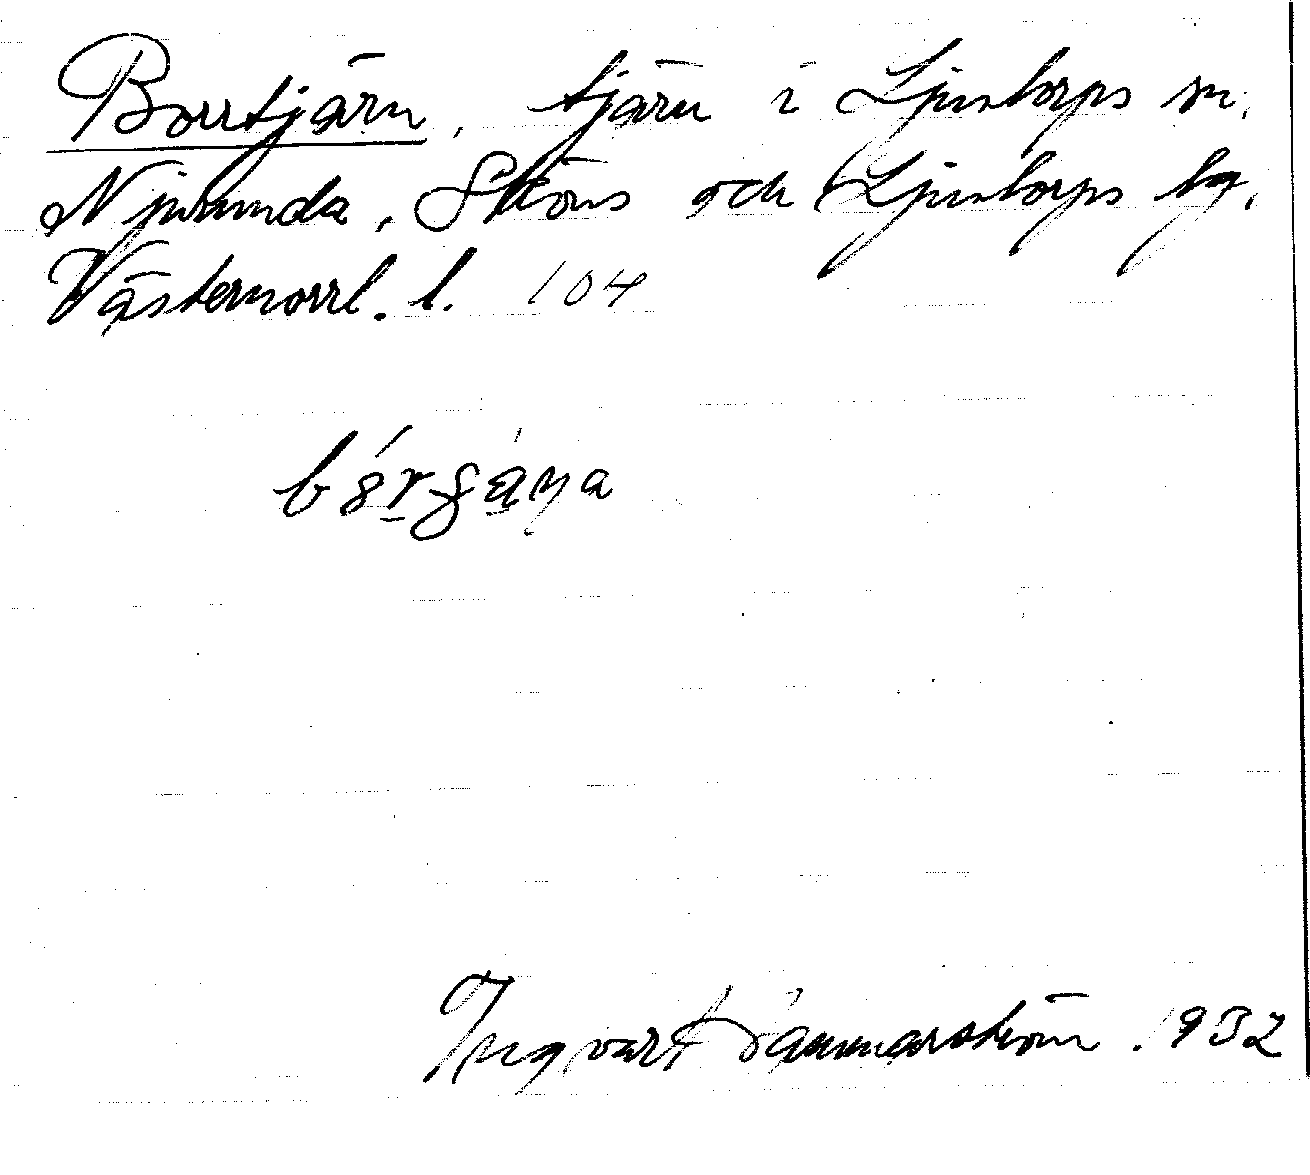 Borrtjärn, tjärn i Ljustorps sn,
Njurunda, Sköns och Ljustorps tg,
Västernorrl. l. 104
Ingvart Hammarström. 1932